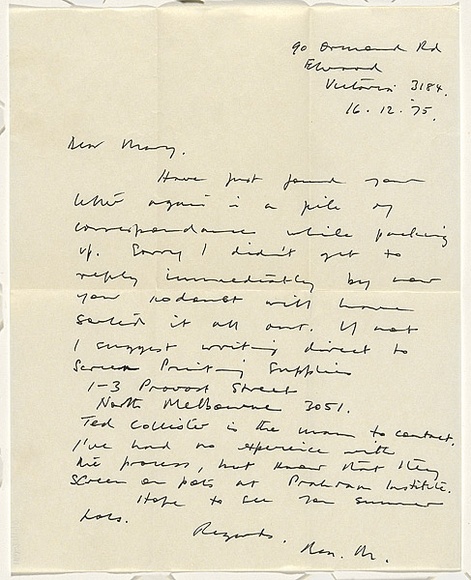 90 Ormond Rd
Elwood
Victoria 3184.
16.12.75.
Dear Mary,
Have just found your
letter again in a pile of
correspondence while packing
up. Sorry I didn't get to
reply immediately by now
your student will have
sorted it all out. If not
I suggest writing direct to
Screen Printing Supplies
1-3 Provost Street
North Melbourne 3051.
Ted Collister is the man to contact.
I've had no experience with
the process, but know that they
screen on pots at Prahran Institute.
Hope to see you summer
Regards.